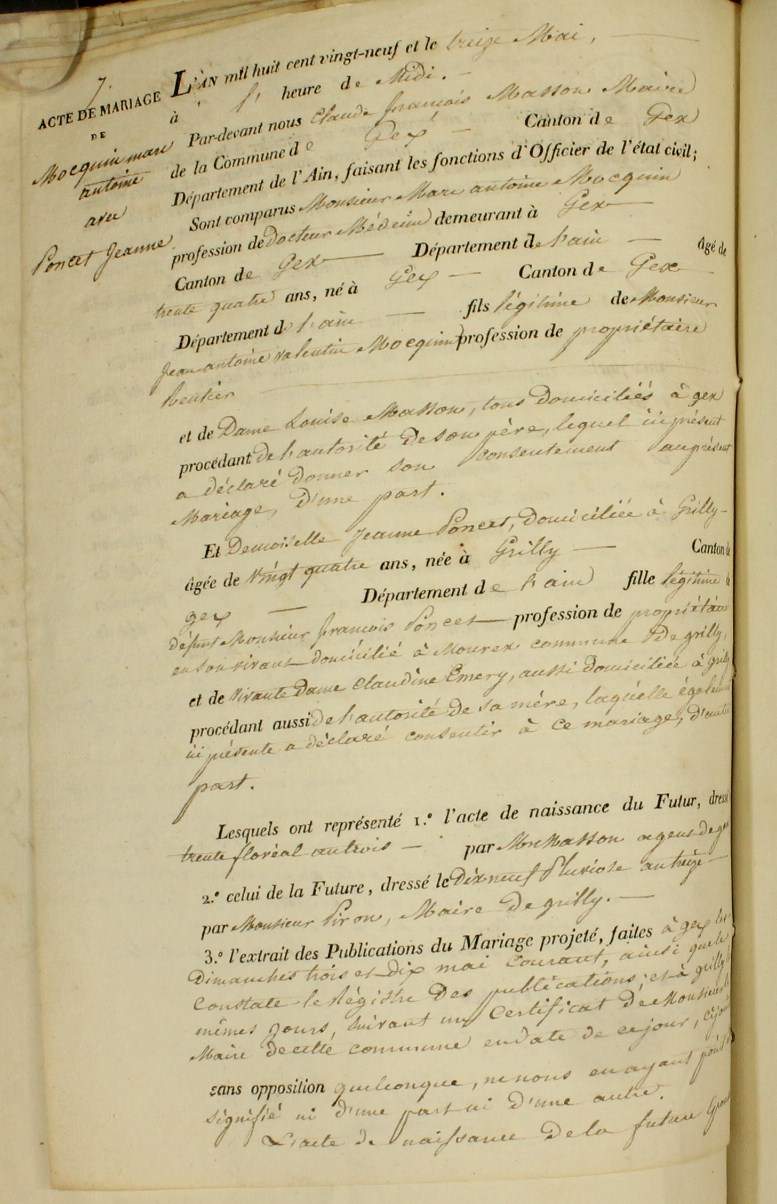 7.
ACTE DE MARIAGE
DE
Mocquin marc
antoine
avec
Poncet Jeanne
L'AN mil huit cent vingt-neuf et le treize Mai,
à l' heure de Midi.
Par-devant nous Claude françois Masson Maire
de la Commune de Gex Canton de Gex
Département de l'Ain, faisant les fonctions d'Officier de l'état civil;
Sont comparus Monsieur Marc antoine Mocquin
profession de Docteur Médecin demeurant à Gex
Canton de Gex Département de l'ain Agé de
trente quatre ans, né à Gex Canton de Gex
Département de l'ain fils légitime de Monsieur
Jean antoine valentin Mocquin profession de propriétaire
Rentier
et de Dame Louise Masson, tous domiciliés à gex
procédant de l'autorité de son père, lequel ici présent
a déclaré donner son consentement au présent
Mariage, d'une part.
Et Demoiselle Jeanne Poncet, domiciliée à Grilly
âgée de vingt quatre ans, née à Grilly Canton de
gex Département de l'ain fille légitime de
défunt Monsieur françois Poncet profession de propriétaire
en son vivant domicilié à Mourex commune de grilly,
et de vivante Dame Claudine Emery, aussi domiciliée à grilly
procédant aussi de l'autorité de sa mère, laquelle également
ici présente a déclaré consentir à ce mariage, d'autre
part.
Lesquels ont représenté 1.º l'acte de naissance du Futur, dressé
trente floréal an trois par Mr Masson agent de gex
2.º celui de la Future, dressé le Dix neuf Pluviose an treize
par Monsieur Piron, Maire de grilly.
3.º l'extrait des Publications du Mariage projeté, faites à gex les
Dimanches trois et dix mai courant, ainsi que le
constate le Régistre des publications; et à grilly les
mêmes jours, suivant un Certificat de Monsieur le
Maire de cette commune en date de ce jour,
sans opposition quelconque, ne nous en ayant point été
signifié ni d'une part ni d'une autre.
L'acte de naissance de la future